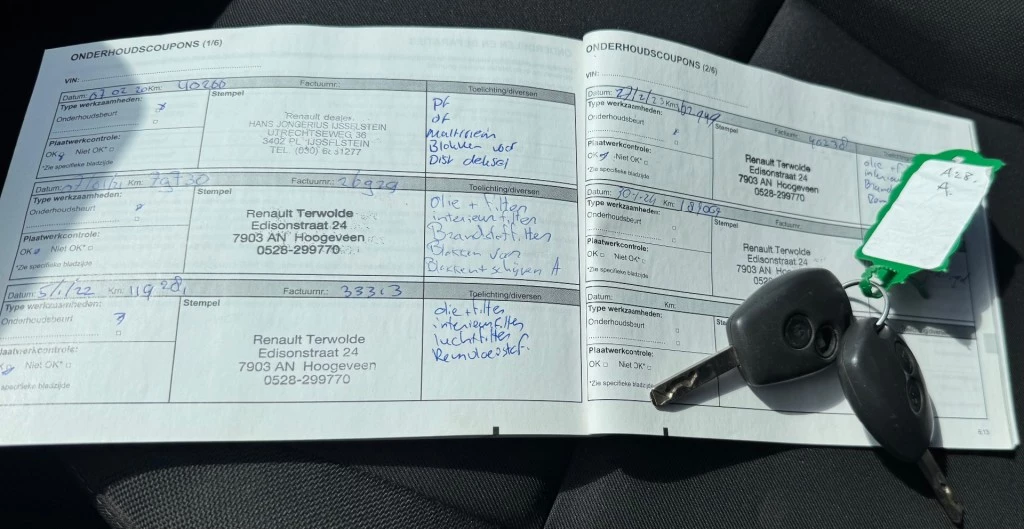 ONDERHOUDSCOUPONS (1/6)
VIN:
Datum: 07 02 20 Km: 40200 Factuurnr.: Toelichting/diversen
Type werkzaamheden: x Stempel
Onderhoudsbeurt
Plaatwerkcontrole:
OK Niet OK*
*Zie specifieke bladzijde
Renault dealer
HANS JONGERIUS IJSSELSTEIN
UTRECHTSEWEG 38
3402 PL IJSSELSTEIN
TEL. (030) 61277
pf
of
Blokken voor
Dist deksel
Datum: Km: 79730 Factuurnr.: 26929 Toelichting/diversen
Type werkzaamheden: Stempel
Onderhoudsbeurt
Plaatwerkcontrole:
OK Niet OK*
*Zie specifieke bladzijde
Renault Terwolde
Edisonstraat 24
7903 AN Hoogeveen
0528-299770
Olie + filter
interieurfilter
Brandstoffilter
Blokken
Blokken + schijven A
5/1/22 Km: 119 281 Factuurnr.: 33313 Toelichting/diversen
Type werkzaamheden: Stempel
Onderhoudsbeurt
Plaatwerkcontrole:
Niet OK*
specifieke bladzijde
Renault Terwolde
Edisonstraat 24
7903 AN Hoogeveen
0528-299770
olie + filter
interieurfilter
luchtfilter
Remvloeistof.
ONDERHOUDSCOUPONS (2/6)
VIN:
Datum: Km: Factuurnr.: 40238
Type werkzaamheden: Stempel
Onderhoudsbeurt
Plaatwerkcontrole:
OK Niet OK*
*Zie specifieke bladzijde
Renault Terwolde
Edisonstraat 24
7903 AN Hoogeveen
0528-299770
olie +
Datum: Km:
Type werkzaamheden:
Onderhoudsbeurt
Plaatwerkcontrole:
OK Niet OK*
*Zie specifieke bladzijde
Renault Terwolde
Edisonstraat 24
7903 AN
052
Datum: Km:
Type werkzaamheden:
Onderhoudsbeurt
Plaatwerkcontrole:
OK Niet OK*
*Zie specifieke
A28.